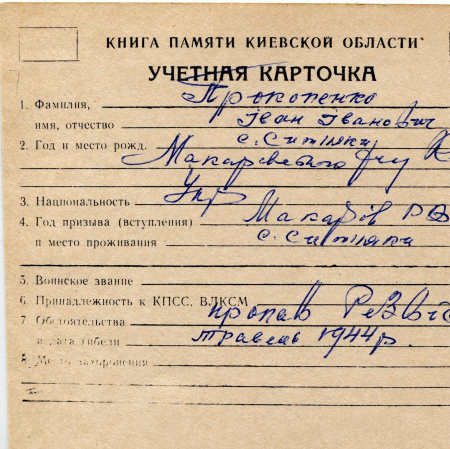 КНИГА ПАМЯТИ КИЕВСКОЙ ОБЛАСТИ
УЧЕТНАЯ КАРТОЧКА
1. Фамилия, Прокопенко
имя, отчество Іван Іванович
2. Год и место рожд. с. Ситняки
Макарівського р-ну К
3. Национальность Укр
4. Год призыва (вступления) Макарів РВ
и место проживания с. Ситняки
5. Воинское звание
6. Принадлежность к КПСС, ВЛКСМ
7 Обстоятельства пропав
и дата гибели травень 1944 р.
8. Место захоронения